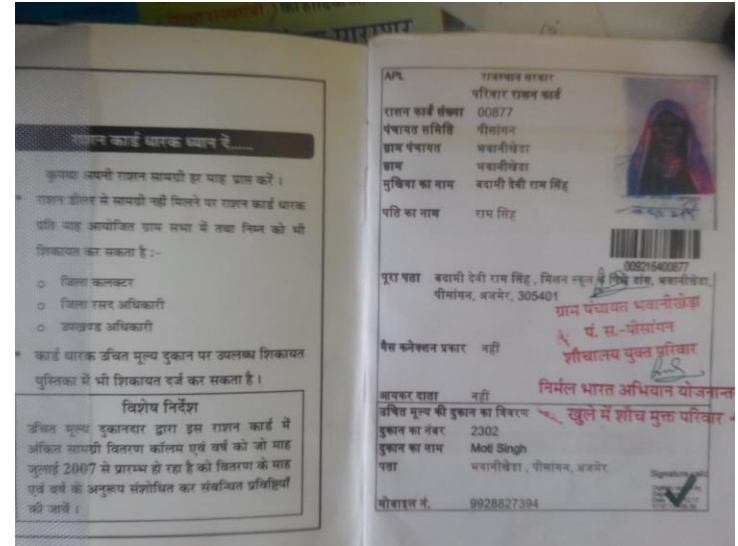 राशन कार्ड धारक ध्यान दें......
कृपया अपनी राशन सामग्री हर माह प्राप्त करें ।
राशन डीलर से सामग्री नहीं मिलने पर राशन कार्ड धारक
प्रति माह आयोजित ग्राम सभा में तथा निम्न को भी
शिकायत कर सकता है :-
जिला कलक्टर
जिला रसद अधिकारी
उपखण्ड अधिकारी
कार्ड धारक उचित मूल्य दुकान पर उपलब्ध शिकायत
पुस्तिका में भी शिकायत दर्ज कर सकता है ।
विशेष निर्देश
उचित मूल्य दुकानदार द्वारा इस राशन कार्ड में
अंकित सामग्री वितरण कॉलम एवं वर्ष को जो माह
जुलाई 2007 से प्रारम्भ हो रहा है को वितरण के माह
एवं वर्ष के अनुरूप संशोधित कर संबन्धित प्रविष्टियाँ
की जावें ।
APL राजस्थान सरकार
परिवार राशन कार्ड
राशन कार्ड संख्या 00877
पंचायत समिति पीसांगन
ग्राम पंचायत भवानीखेडा
ग्राम भवानीखेडा
मुखिया का नाम बदामी देवी राम सिंह
पति का नाम राम सिंह
009215400877
पूरा पता बदामी देवी राम सिंह , मिशन स्कूल के, भवानीखेडा,
पीसांगन, अजमेर, 305401
ग्राम पंचायत भवानीखेड़ा
पं. स.-पीसांगन
गैस कनेक्शन प्रकार नहीं
शौचालय युक्त परिवार
आयकर दाता नहीं
निर्मल भारत अभियान योजनान्त
उचित मूल्य की दुकान का विवरण
खुले में शौच मुक्त परिवार
दुकान का नंबर 2302
दुकान का नाम Moti Singh
पता भवानीखेडा , पीसांगन, अजमेर
मोबाइल नं. 9928827394